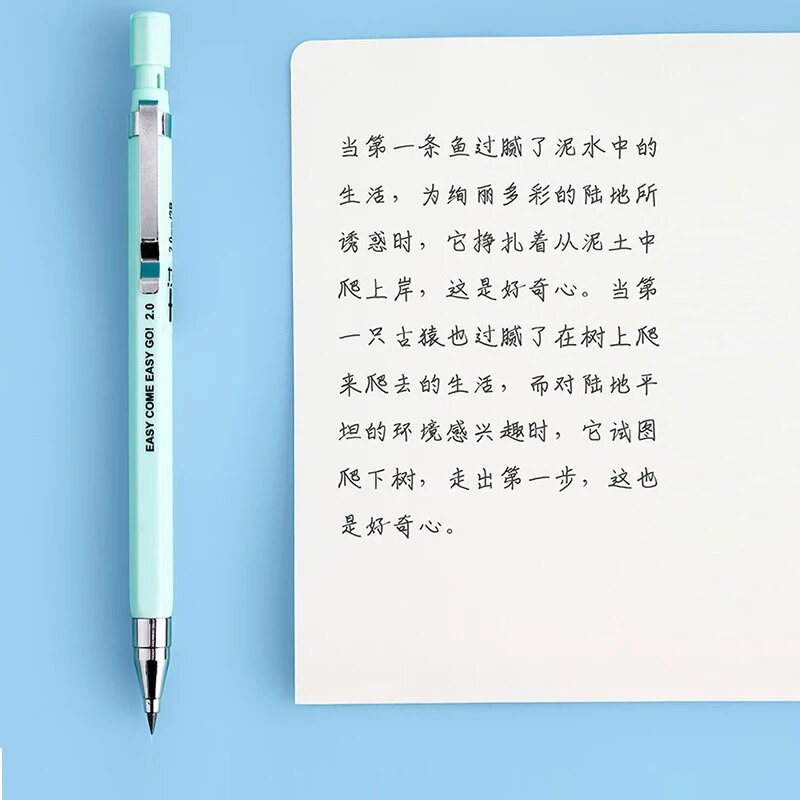 当第一条鱼过腻了泥水中的
生活，为绚丽多彩的陆地所
诱惑时，它挣扎着从泥土中
爬上岸，这是好奇心。当第
一只古猿也过腻了在树上爬
来爬去的生活，而对陆地平
坦的环境感兴趣时，它试图
爬下树，走出第一步，这也
是好奇心。
EASY COME EASY GO! 2.0